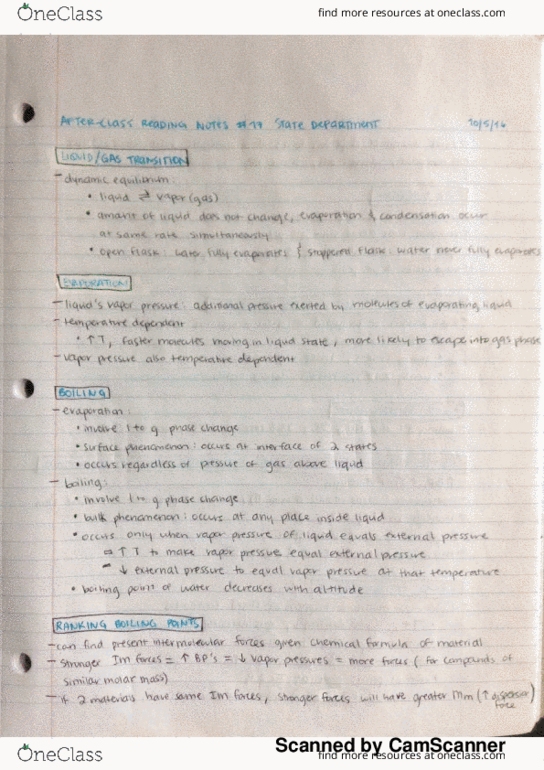 OneClass
find more resources at oneclass.com
AFTER-CLASS READING NOTES #17 STATE DEPARTMENT 10/5/16
LIQUID/GAS TRANSITION
- dynamic equilibrium:
• liquid ⇌ vapor (gas)
• amount of liquid does not change, evaporation & condensation occur
at same rate simultaneously
• open flask: water fully evaporates & stoppered flask: water never fully evaporates
EVAPORATION
- liquid's vapor pressure: additional pressure exerted by molecules of evaporating liquid
- temperature dependent
• ↑T, faster molecules moving in liquid state, more likely to escape into gas phase
- vapor pressure also temperature dependent
BOILING
- evaporation:
• involve l to g phase change
• surface phenomenon: occurs at interface of 2 states
• occurs regardless of pressure of gas above liquid
- boiling:
• involve l to g phase change
• bulk phenomenon: occurs at any place inside liquid
• occurs only when vapor pressure of liquid equals external pressure
↑T to make vapor pressure equal external pressure
↓ external pressure to equal vapor pressure at that temperature
• boiling point of water decreases with altitude
RANKING BOILING POINTS
- can find present intermolecular forces given chemical formula of material
- Stronger Im forces = ↑ BP's = ↓ vapor pressures = more forces (for compounds of
similar molar mass)
- if 2 materials have same Im forces, stronger forces will have greater Mm (↑ dispersion
force)
Scanned by CamScanner
OneClass
find more resources at oneclass.com